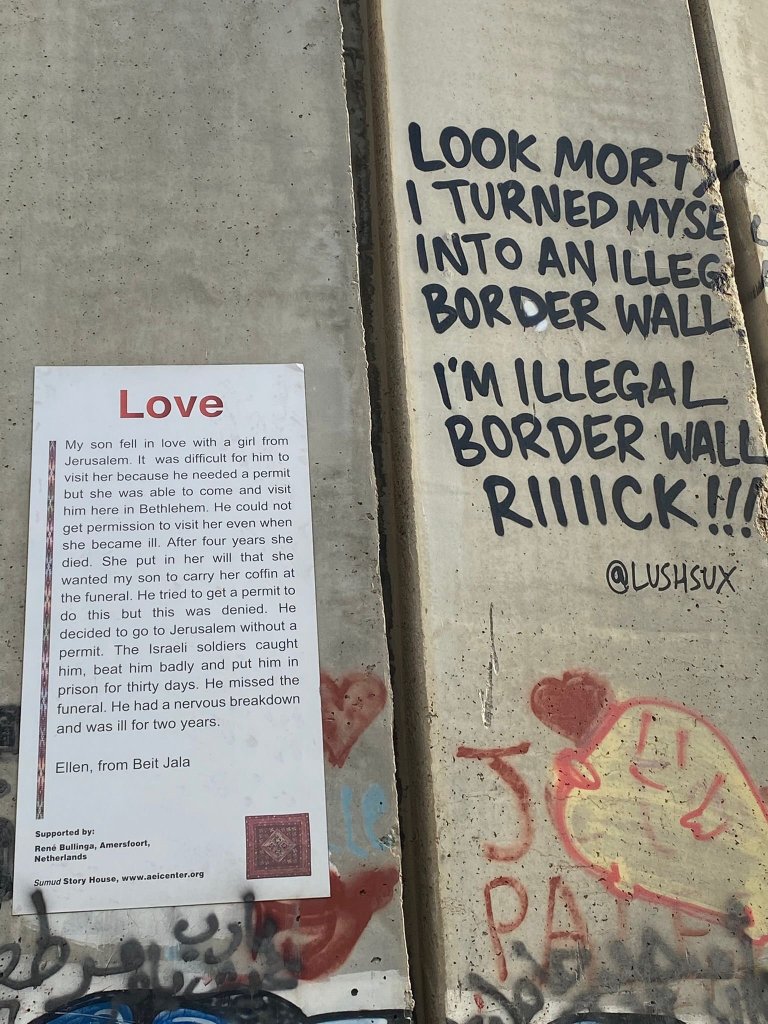 Love
My son fell in love with a girl from
Jerusalem. It was difficult for him to
visit her because he needed a permit
but she was able to come and visit
him here in Bethlehem. He could not
get permission to visit her even when
she became ill. After four years she
died. She put in her will that she
wanted my son to carry her coffin at
the funeral. He tried to get a permit to
do this but this was denied. He
decided to go to Jerusalem without a
permit. The Israeli soldiers caught
him, beat him badly and put him in
prison for thirty days. He missed the
funeral. He had a nervous breakdown
and was ill for two years.
Ellen, from Beit Jala
Supported by:
René Bullinga, Amersfoort,
Netherlands
Sumud Story House, www.aeicenter.org
LOOK MORTY
I TURNED MYSE
INTO AN ILLEG
BORDER WALL
I'M ILLEGAL
BORDER WALL
RIIIICK!!!
@LUSHSUX